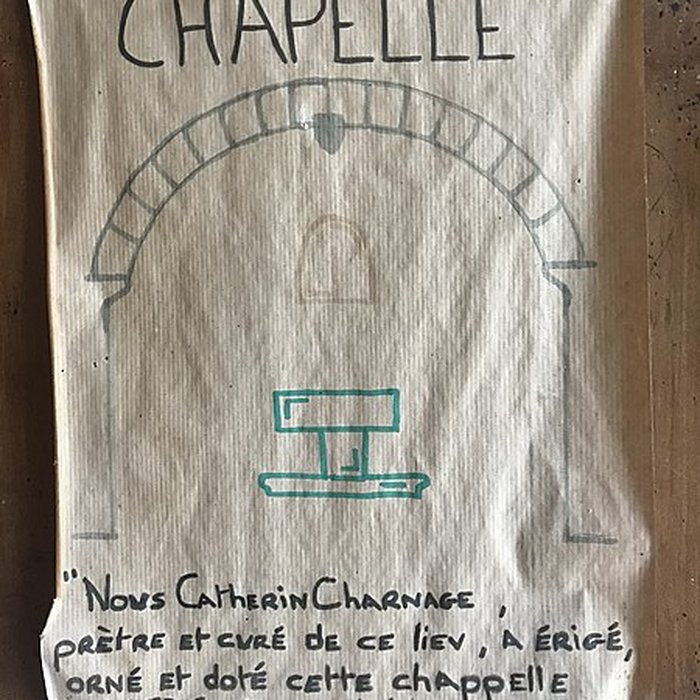 CHAPELLE
"Nous Catherin Charnage,
prètre et curé de ce liev, à érigé,
orné et doté cette chappelle